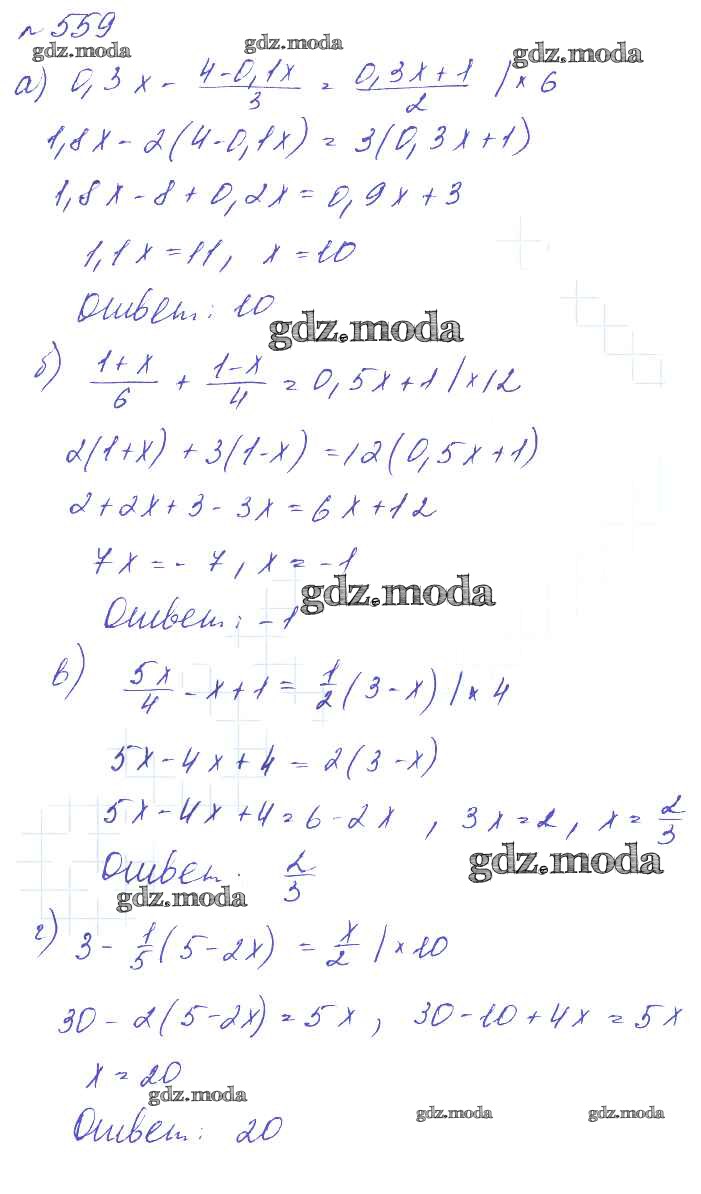 № 559
gdz.moda gdz.moda gdz.moda
а) 0,3x - (4-0,1x)/3 = (0,3x+1)/2 |×6
1,8x - 2(4-0,1x) = 3(0,3x+1)
1,8x - 8 + 0,2x = 0,9x + 3
1,1x = 11, x = 10
Ответ: 10
gdz.moda
б) (1+x)/6 + (1-x)/4 = 0,5x+1 |×12
2(1+x) + 3(1-x) = 12(0,5x+1)
2+2x+3-3x = 6x+12
7x = -7, x = -1
gdz.moda
Ответ: -1
в) 5x/4 - x + 1 = 1/2(3-x) |×4
5x - 4x + 4 = 2(3-x)
5x - 4x + 4 = 6 - 2x, 3x = 2, x = 2/3
Ответ: 2/3
gdz.moda
gdz.moda
г) 3 - 1/5(5-2x) = x/2 |×10
30 - 2(5-2x) = 5x, 30-10+4x = 5x
x = 20
gdz.moda
gdz.moda gdz.moda
Ответ: 20